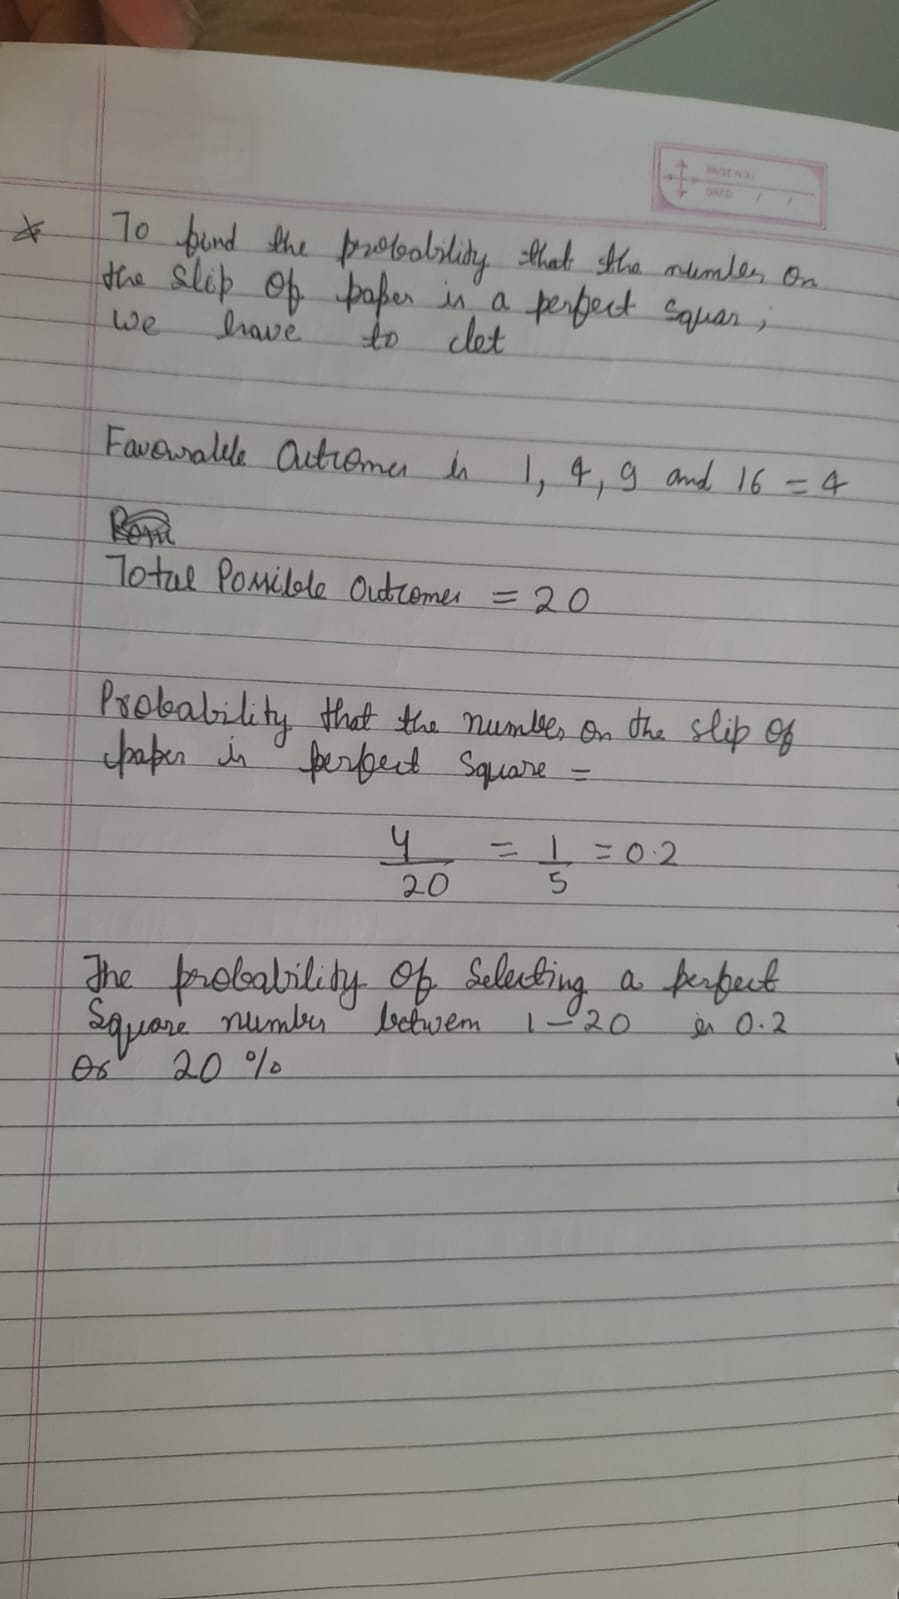 PAGE NO.:
DATE: / /
To find the probability that the number on
the slip of paper is a perfect squar,
we have to det
Favourable Outcomes is 1, 4, 9 and 16 = 4
Total Possible Outcomes = 20
Probability that the number on the slip of
paper is perfect square =
4/20 = 1/5 = 0.2
The probability of selecting a perfect
Square number between 1-20 is 0.2
or 20 %